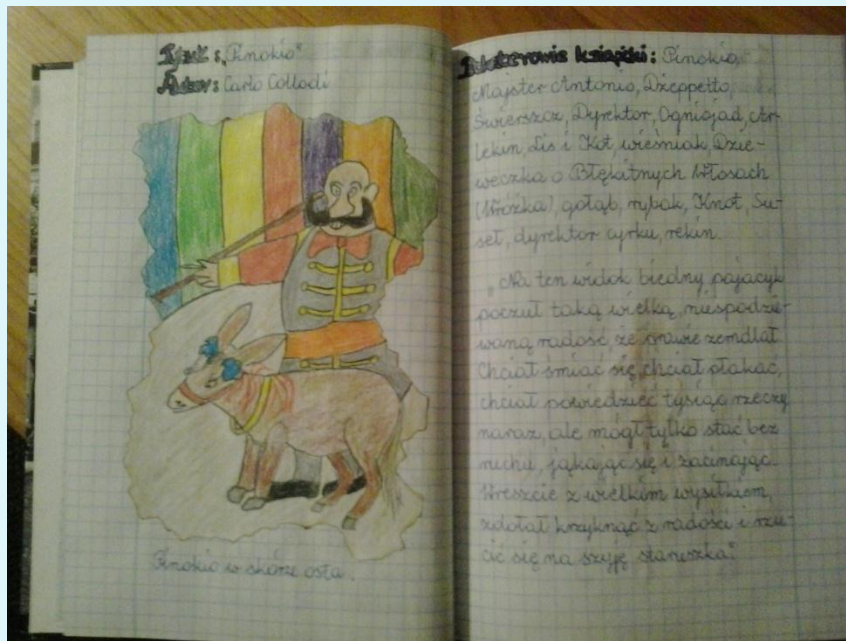 Tytuł: „Pinokio"
Autor: Carlo Collodi
Pinokio w skórze osła.
Bohaterowie książki: Pinokio,
Majster Antonio, Dżeppetto,
Świerszcz, Dyrektor, Ogniojad, Ar-
lekin, Lis i Kot, wieśniak, Dzie-
weczka o Błękitnych Włosach
(Wróżka), gołąb, rybak, Knot, Su-
seł, dyrektor cyrku, rekin.
„Na ten widok biedny pajacyk
poczuł taką wielką, niespodzie-
waną radość że prawie zemdlał.
Chciał śmiać się, chciał płakać,
chciał powiedzieć tysiąc rzeczy
naraz, ale mógł tylko stać bez
ruchu, jąkając się i zacinając.
Wreszcie z wielkim wysiłkiem,
zdołał krzyknąć z radości i rzu-
cić się na szyję staruszka."